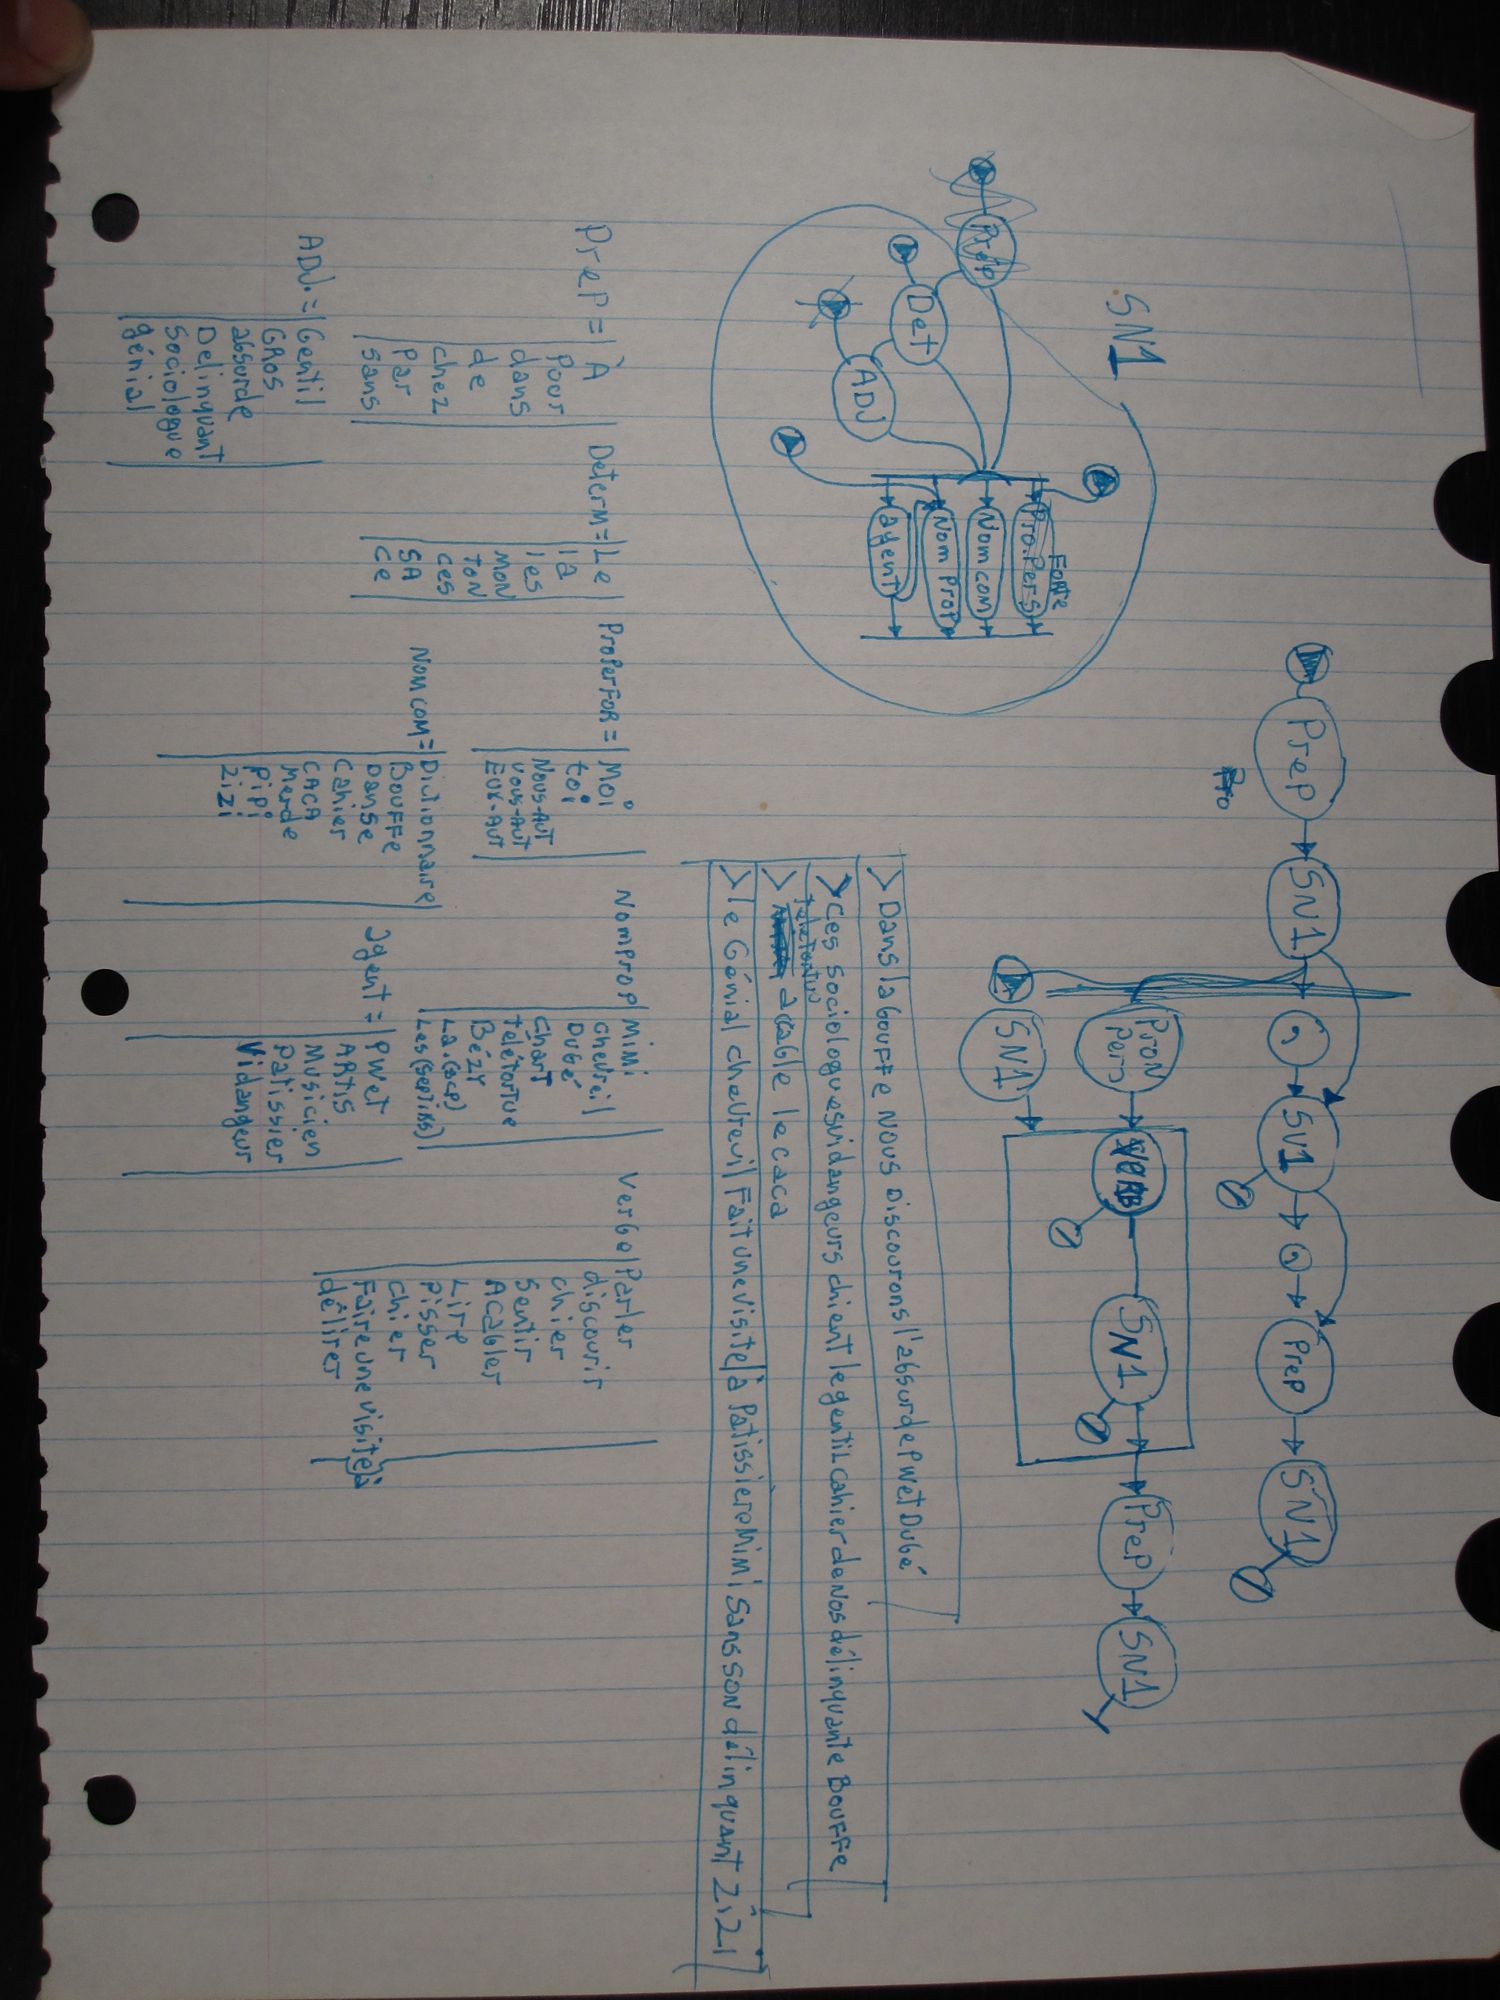 SN1
Prep
Det
ADJ
Forte
Pro.Pers
Nomcom
Nom Prop
agent
Prep
SN1
,
SV1
,
Prep
SN1
Pro
Pron
Pers
VERB
SN1
Prep
SN1
SN1
> Dans la bouffe nous Discourons l'absurde Pwet Dubé
> Ces sociologues vidangeurs chient le gentil cahier de nos délinquante Bouffe
> Teletortue acable le caca
> le Génial chevreuil Fait une visite à Patissiere Mimi Sans son délinquant Zizi
PreP = À
Pour
dans
de
chez
Par
sans
Determ = Le
la
les
MON
TON
ces
SA
Ce
ProPerFOR = Moi
toi
Nous-AUT
Vous-AUT
EUX-AUT
NomProp MiMi
chevreil
Dubé
Chart
Telétortue
Bézy
Verbe Parler
discourir
chier
Sentir
Acabler
Lire
Pisser
chier
Faire une visite à
délirer
ADJ. = Gentil
GROS
absurde
Delinquant
Sociologue
génial
NomCOM = Dictionnaire
Bouffe
Danse
Cahier
CACA
Merde
Pipi
Zizi
agent = PWET
ARTIS
Musicien
Patissier
Vidangeur